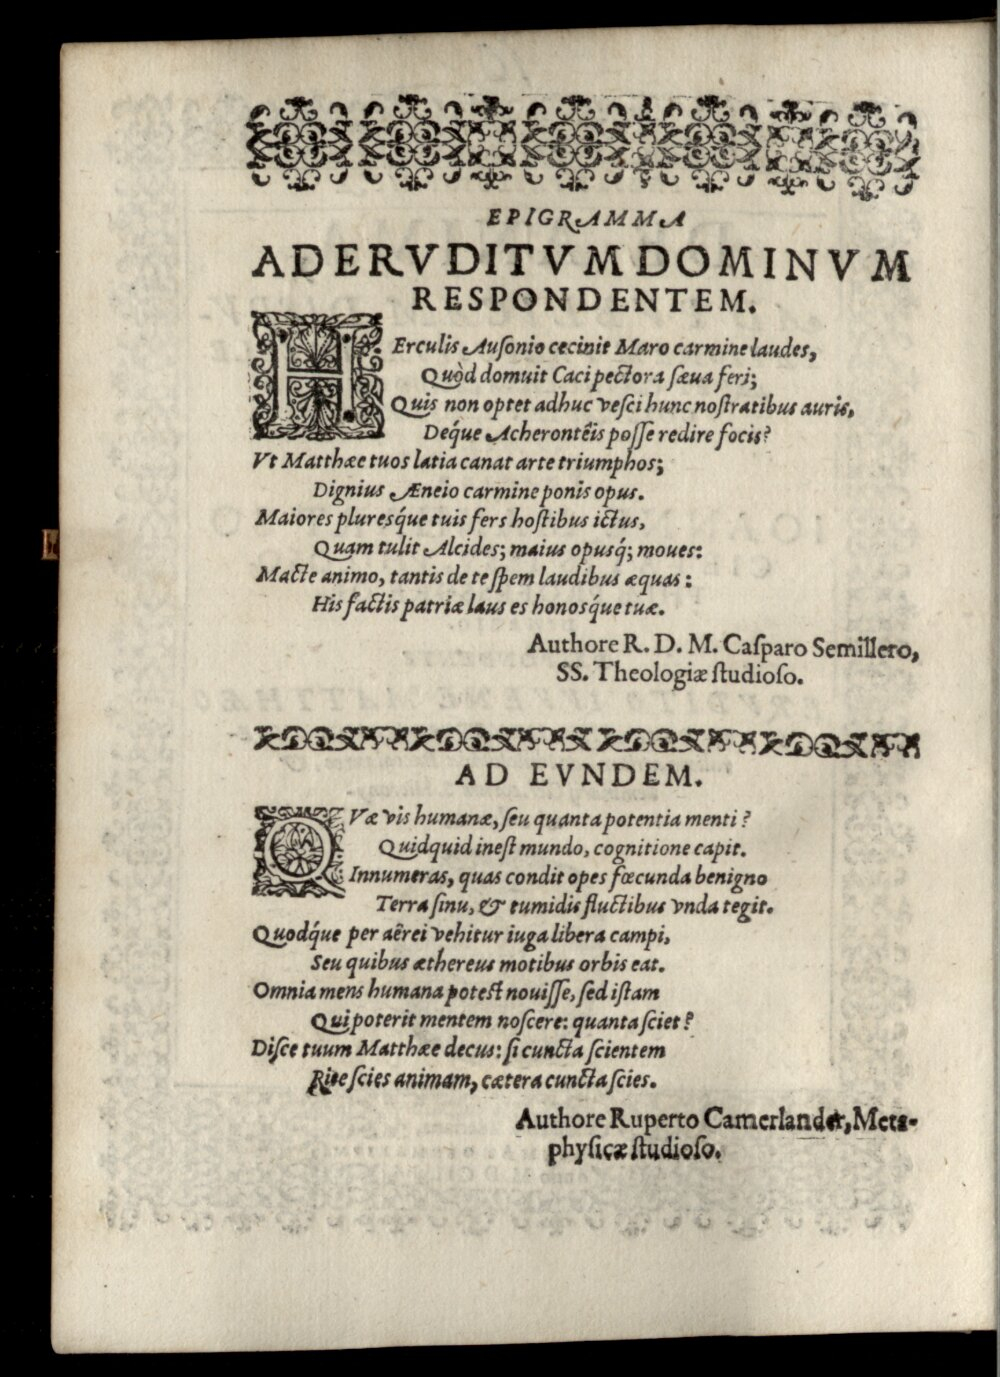 EPIGRAMMA
AD ERVDITVM DOMINVM
RESPONDENTEM.
HErculis Auſonio cecinit Maro carmine laudes,
Quòd domuit Caci pectora ſæua feri;
Quis non optet adhuc veſci hunc noſtratibus auris,
Deq́ue Acherontêis poſſe redire focis?
Vt Matthæe tuos latia canat arte triumphos;
Dignius Æneio carmine ponis opus.
Maiores pluresq́ue tuis fers hoſtibus ictus,
Quam tulit Alcides; maius opusq́; moues:
Macte animo, tantis de te ſpem laudibus æquas:
His factis patriæ laus es honosq́ue tuæ.
Authore R. D. M. Caſparo Semillero,
SS. Theologiæ ſtudioſo.
AD EVNDEM.
QVæ vis humanæ, ſeu quanta potentia menti?
Quidquid ineſt mundo, cognitione capit.
Innumeras, quas condit opes fœcunda benigno
Terra ſinu, & tumidis fluctibus vnda tegit.
Quodq́ue per aêrei vehitur iuga libera campi,
Seu quibus æthereus motibus orbis eat.
Omnia mens humana poteſt nouiſſe, ſed iſtam
Qui poterit mentem noſcere: quanta ſciet?
Diſce tuum Matthæe decus: ſi cuncta ſcientem
Rite ſcies animam, cætera cuncta ſcies.
Authore Ruperto Camerlander, Meta-
phyſicæ ſtudioſo.